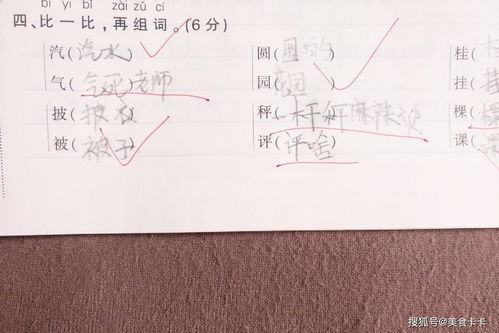 bǐ yì bǐ zài zǔ cí
四、比一比，再组词。(6分)
汽(汽水) 圆(圆的) 桂(
气(气死)老师 园( 挂(
披(披衣) 秤(一杆秤麻辣烫 棵(棵
被(被子) 评(评啥) 课(课
搜狐号@美食卡卡